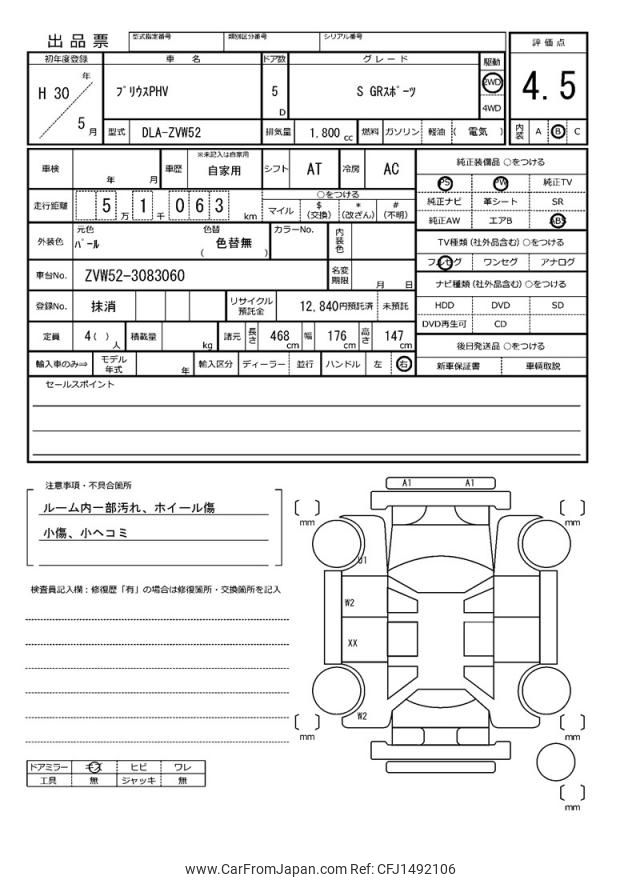 出品票 型式指定番号 類別区分番号 シリアル番号
評価点
4.5
内装 A B C
初年度登録 車名 ドア数 グレード 駆動
H 30 年 5 月
プリウスPHV 5 D S GRスポーツ 2WD 4WD
型式 DLA-ZVW52 排気量 1,800 cc 燃料 ガソリン 軽油 ( 電気 )
車検 年 月 車歴 ※未記入は自家用 自家用 シフト AT 冷房 AC
走行距離 5 万 1 千 0 6 3 km
○をつける
マイル $ (交換) * (改ざん) # (不明)
外装色 元色 パール 色替 色替無 ( ) カラーNo. 内装色
車台No. ZVW52-3083060 名変期限 月 日
登録No. 抹消 リサイクル預託金 12,840円預託済 未預託
定員 4( ) 人 積載量 kg 諸元 長さ 468 cm 幅 176 cm 高さ 147 cm
輸入車のみ⇒ モデル年式 年 輸入区分 ディーラー 並行 ハンドル 左 右
純正装備品 ○をつける
PS PW 純正TV
純正ナビ 革シート SR
純正AW エアB ABS
TV種類(社外品含む)○をつける
フルセグ ワンセグ アナログ
ナビ種類(社外品含む)○をつける
HDD DVD SD
DVD再生可 CD
後日発送品 ○をつける
新車保証書 車輌取説
セールスポイント
注意事項・不具合箇所
ルーム内一部汚れ、ホイール傷
小傷、小ヘコミ
検査員記入欄：修復歴「有」の場合は修復箇所・交換箇所を記入
ドアミラー キズ ヒビ ワレ
工具 無 ジャッキ 無
A1 A1
mm mm
U1
W2
XX
W2
mm mm
mm
www.CarFromJapan.com Ref: CFJ1492106